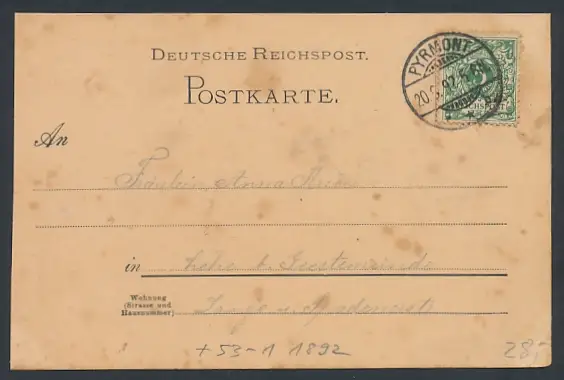 DEUTSCHE REICHSPOST.
POSTKARTE.
PYRMONT
20
92
An
Fräulein Anna
in Lehe b. Geestemünde
Wohnung
(Strasse und
Hausnummer)
Lange
+ 53-1 1892
28,-